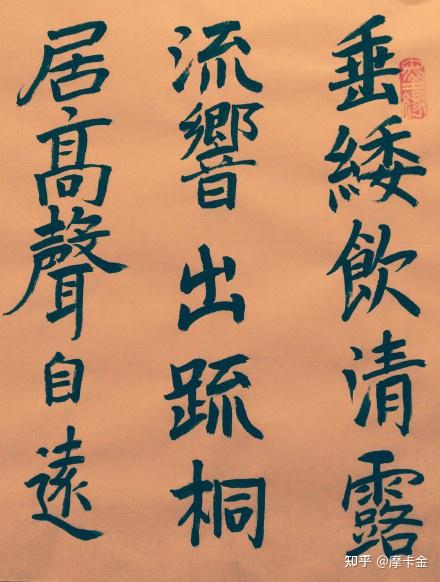 垂緌飲清露
流響出疏桐
居高聲自遠
知乎 @摩卡金